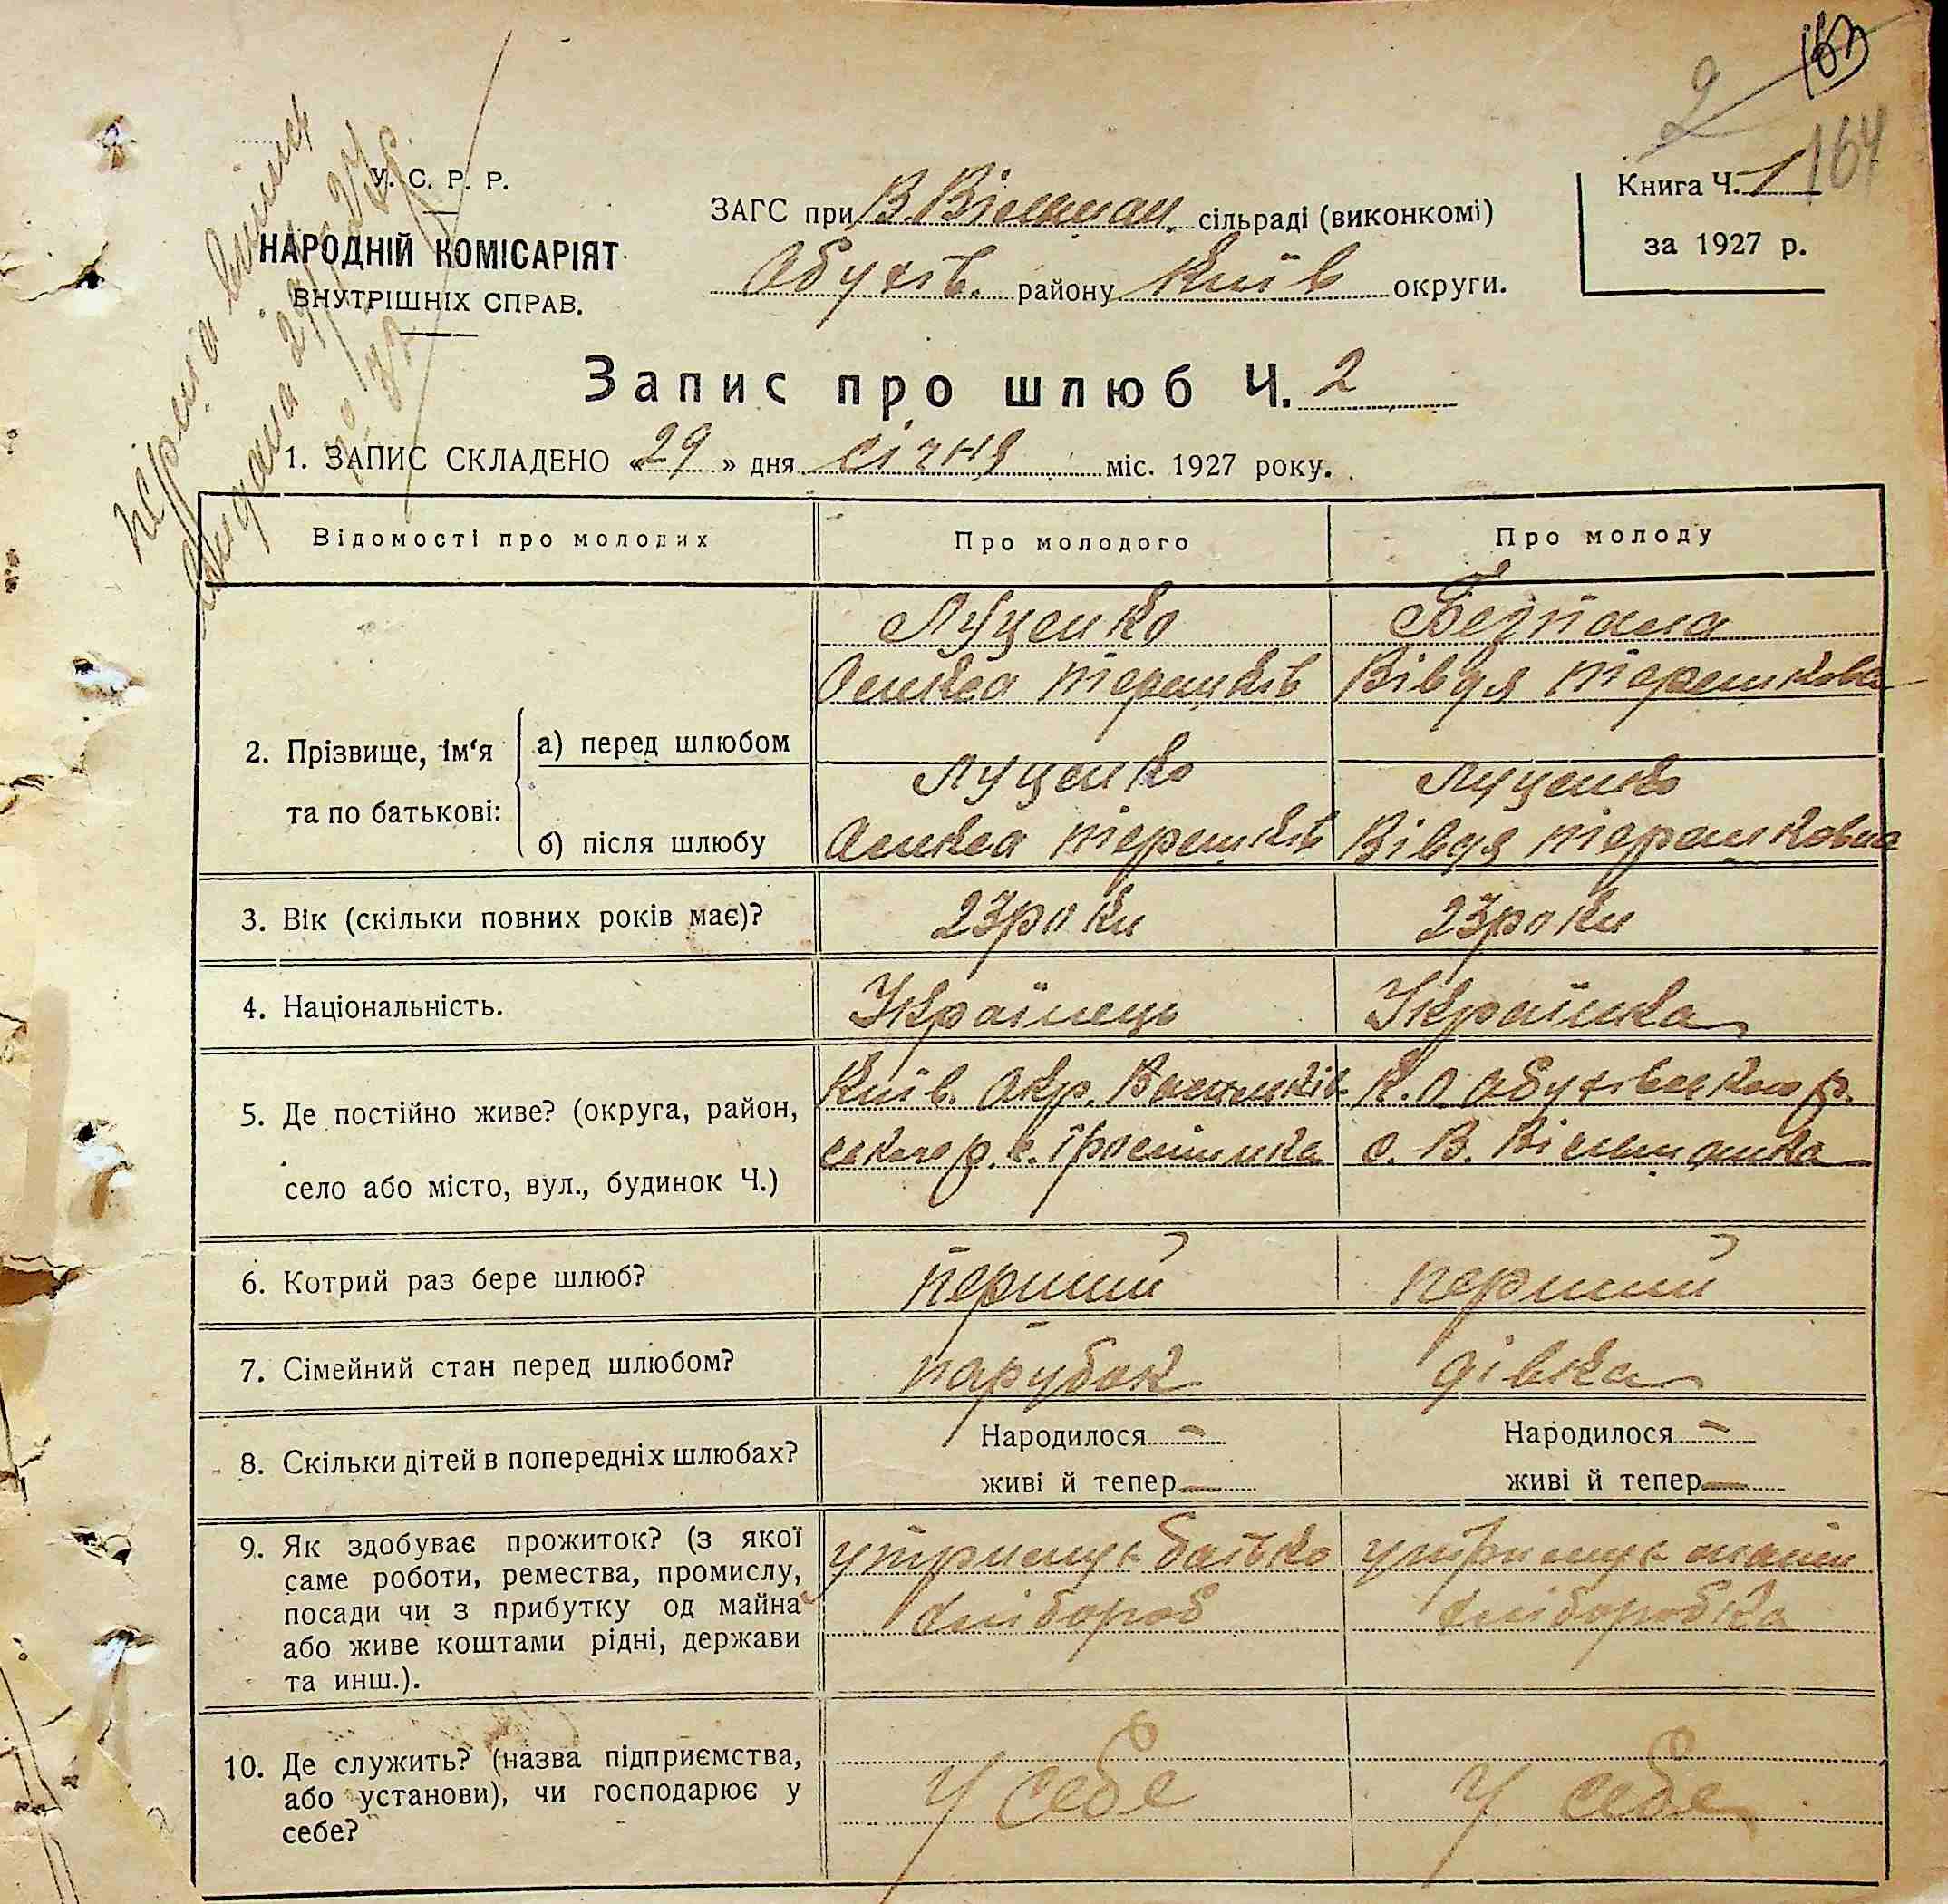 163
2
164
У. С. Р. Р.
НАРОДНІЙ КОМІСАРІЯТ
ВНУТРІШНІХ СПРАВ.
ЗАГС при В. Вільшан. сільраді (виконкомі)
Обухів. району Київ округи.
Книга Ч. 1
за 1927 р.
Запис про шлюб Ч. 2
1. ЗАПИС СКЛАДЕНО «29» дня січня міс. 1927 року.
Відомості про молодих
Про молодого
Про молоду
2. Прізвище, ім‘я та по батькові:
а) перед шлюбом
Луценко
Олекса Терешків
Безпала
Вівдя Терешкова
б) після шлюбу
Луценко
Олекса Терешків
Луценко
Вівдя Терешковна
3. Вік (скільки повних років має)?
23 роки
23 роки
4. Національність.
Українець
Українка
5. Де постійно живе? (округа, район,
село або місто, вул., будинок Ч.)
Київ. Окр. Васильків
ського р. с.
К. О. Обухівського р.
с. В. Вільшанка
6. Котрий раз бере шлюб?
перший
перший
7. Сімейний стан перед шлюбом?
парубок
дівка
8. Скільки дітей в попередніх шлюбах?
Народилося –
живі й тепер —
Народилося –
живі й тепер —
9. Як здобуває прожиток? (з якої
саме роботи, ремества, промислу,
посади чи з прибутку од майна
або живе коштами рідні, держави
та инш.).
утримує батько
хлібороб
утримує мати
хліборобка
10. Де служить? (назва підприємства,
або установи), чи господарює у
себе?
У себе
У себе